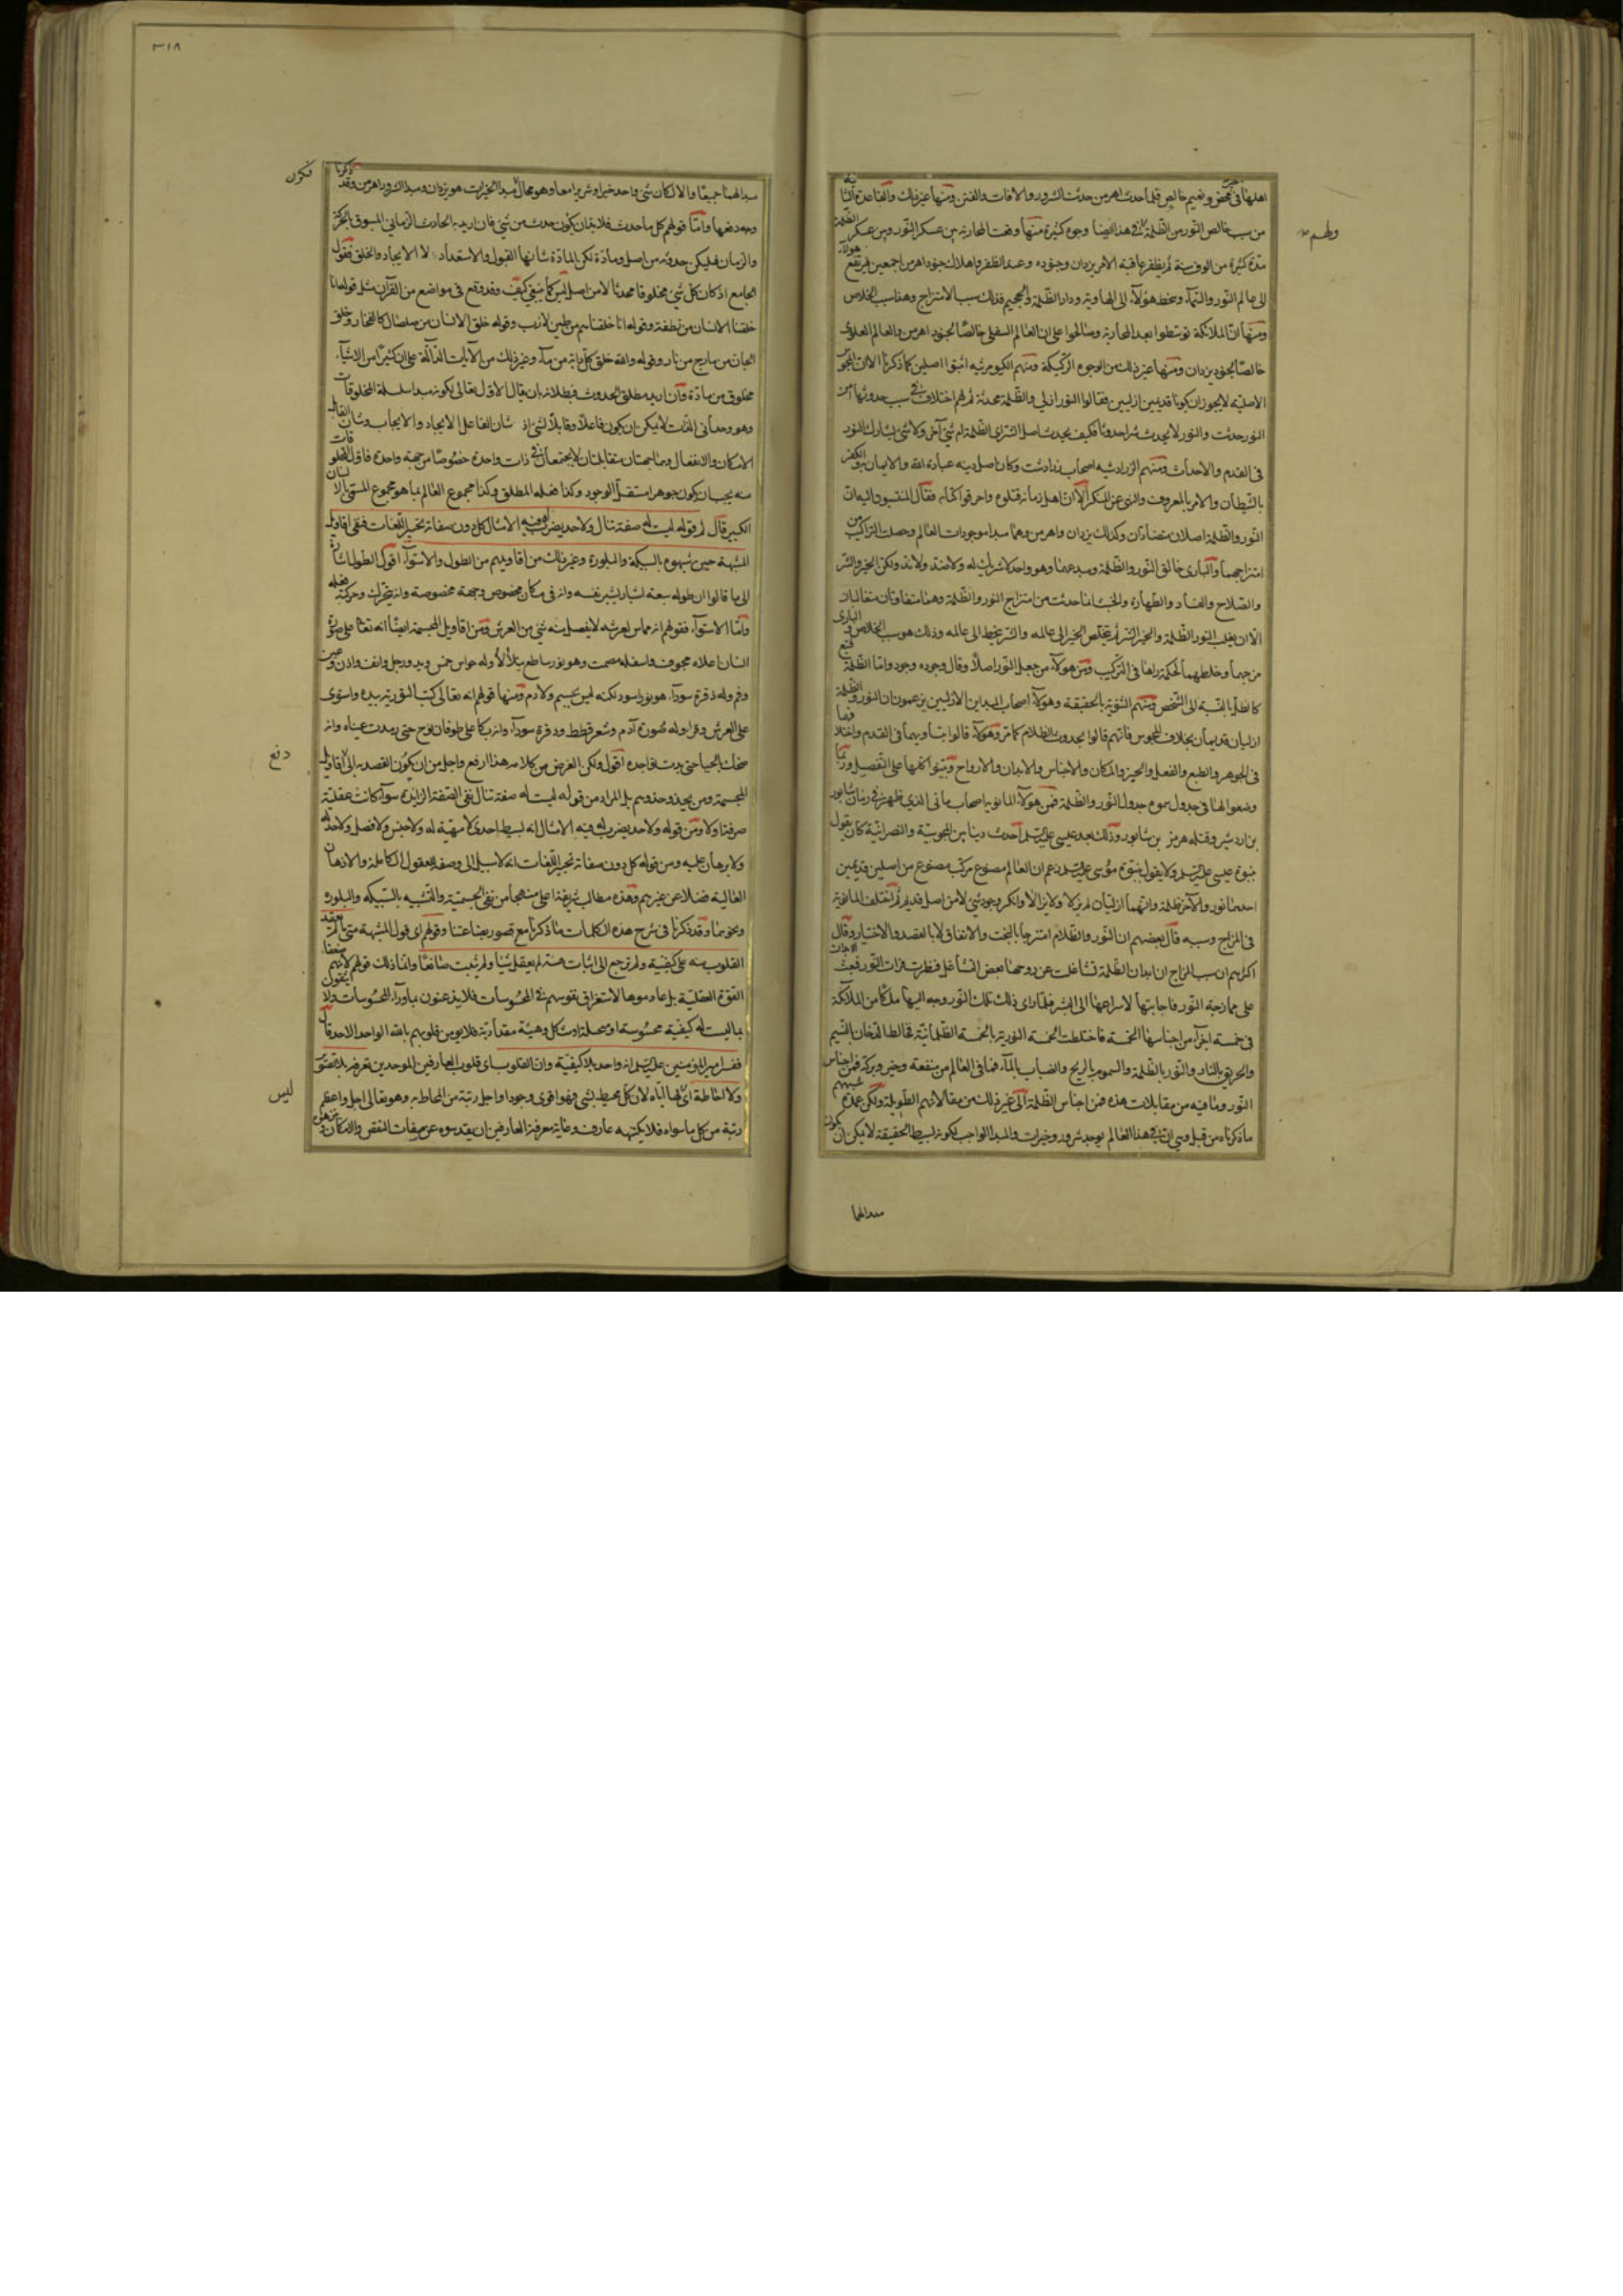 اهلها فى محض ونعيم خالص فلما حدث اهرمن حدثت الشرور والآفات والفتن ومنها غير ذلك والقاعدة الثانية
من سبب خالص النور من الظلمة فى هذا ايضا وجوه كثيرة منها وقعت المحاربة بين عسكر النور وبين عسكر الظلمة
مدة كثيرة من الوف سنة ثم يظفر عاقبة الامر يزدان وجنوده وعند الظفر واهلاك جنود اهرمن اجمعين فيرتفع هؤلاء
الى عالم النور والسماء وينحط هؤلاء الى الهاوية ودار الظلمة والجحيم فذلك سبب الامتزاج وهذا سبب الخلاص
ومنها ان الملائكة توسطوا بعد المحاربة وصالحوا على ان العالم السفلى خالصا لجنود اهرمن والعالم العلوى
خالصا لجنود يزدان ومنها غير ذلك من الوجوه الركيكة ومنهم الكيومرثيه اثبتوا اصلين كما ذكرنا الا ان المجوس
الاصلية لا يجوز ان يكونا قديمين ازليين فقالوا النور ازلى والظلمة محدثة ثم لهم اختلاف فى سبب حدوثها أمن
النور حدثت والنور لا يحدث شرا جدوثا فكيف يحدث اصل الشر اى الظلمة ام شىء آخر ولا شىء يشارك النور
فى القدم والاحداث ومنهم الزرادشتيه اصحاب زرادشت وكان اصل دينه عبادة الله والايمان به والكفر
بالشيطان والامر بالمعروف والنهى عن المنكر الا ان اهل زمانه قتلوه واحرقوا كتابه فقال المنتسبون اليه ان
النور والظلمة اصلان متضادان وكذلك يزدان واهرمن وهما مبدا موجودات العالم وحصلت التراكيب من
امتزاجهما والبارى خالق النور والظلمة ومبدعهما وهو واحد لا شريك له ولا ضد ولا ند ولكن الخير والشر
والصلاح والفساد والطهارة والخبث انما حدثت من امتزاج النور والظلمة وهما متفاوتان متغالبان
الا ان يغلب النور الظلمة والخير الشر ثم يتخلص الخير الى عالمه والشر ينحط الى عالمه وذلك هو سبب الخلاص والبارى
مزجهما وخلطهما لحكمة راها فى التركيب ومن هؤلاء من جعل النور اصلا وقال وجوده وجود واما الظلمة فتبع
كالظل بالنسبة الى الشخص ومنهم الثنوية بالحقيقة وهؤلاء اصحاب المبداين الازليين يزعمون ان النور والظلمة
ازليان قديمان بخلاف المجوس فانهم قالوا بحدوث الظلام كما مر وهؤلاء قالوا بتساويهما فى القدم واختلافهما
فى الجوهر والطبع والفعل والحيز والمكان والاجناس والابدان والارواح وبينوا كلها على التفصيل وربما
وضعوا لهما فى جدول سموه جدول النور والظلمة فمن هؤلاء المانويه اصحاب مانى الذى ظهر فى زمان شابور
بن اردشير وقتله هرمز بن شابور وذلك بعد عيسى عليه السلام احدث دينا بين المجوسية والنصرانية كان يقول
بنبوة عيسى عليه السلام ولا يقول بنبوة موسى عليه السلام زعم ان العالم مصنوع مركب مصنوع من اصلين قديمين
احدهما نور والآخر ظلمة وانهما ازليان لم يزالا ولا يزالا وانكر وجود شىء لا من اصل قديم ثم اختلف المانوية
فى المزاج وسببه قال بعضهم ان النور والظلام امتزجا بالبخت والاتفاق لا بالقصد والاختيار وقال
اكثرهم ان سبب المزاج ان ابدان الظلمة تشاغلت عن روحها بعض التشاغل فنظرت فرات النور فبعثت الابدان
على ممازجة النور فاجابتها لاسراعها الى الشر فلما راى ذلك ملك النور وجه اليها ملكا من الملائكة
فى خمسة اجزاء من اجناسها الخمسة فاختلطت الخمسة النورية بالخمسة الظلمانية فخالط الدخان النسيم
والحريق النار والنور بالظلمة والسموم بالريح والضباب بالماء فما فى العالم من منفعة وخير وبركة فمن اجناس
النور وما فيه من مقابلات هذه فمن اجناس الظلمة الى غير ذلك من مقالاتهم الطويلة ولكن عمدة شبههم
ما ذكرناه من قبل وهى ان فى هذا العالم يوجد شرور وخيرات والمبدا الواجب لكونه بسيط الحقيقة لا يمكن ان يكون
مبدالهما
٣١٨
مبدا لهما جميعا والا لكان شىء واحد خيرا وشريرا معا وهو محال فمبدا الخيرات هو يزدان ومبدا الشرور اهرمن وقد ذكرنا
وجه دفعها واما قولهم كل ما حدث فلابد ان يكون حدث من شىء فان اريد به الحادث الزمانى المسبوق بالحركة
والزمان فليكن حدوثه من اصل ومادة لكن المادة شانها القبول والاستعداد لا الايجاد والخلق فنقول
الجامع اذ كان كل شىء مخلوقا محدثا لا من اصل ليس كما ينبغى كيف وقد وقع فى مواضع من القرآن مثل قوله انا
خلقنا الانسان من نطفة وقوله انا خلقناهم من طين لازب وقوله خلق الانسان من صلصال كالفخار وخلق
الجان من مارج من نار وقوله والله خلق كل دابة من ماء وغير ذلك من الآيات الدالة على ان كثيرا من الاشياء
مخلوق من مادة وان اريد مطلق الحدوث فبطلانه بان يقال الاول تعالى لكونه مبدا سلسلة المخلوقات
وهو وحدانى الذات لا يمكن ان يكون فاعلا وقابلا لشىء اذ شان الفاعل الايجاد والايجاب وشان القابل
الامكان والانفعال وهما جهتان متقابلتان لا يجتمعان فى ذات واحدة خصوصا من جهة واحدة فاول المخلوقات
منه يجب ان يكون جوهرا مستقل الوجود وكذا فعله المطلق وكذا مجموع العالم بما هو مجموع المسمى بالانسان
الكبير قال ثم قوله ليست له صفة تنال ولا حد يضرب له فيه الامثال كل دون صفاته تحبير اللغات فنفى اقاويل
المشبهة حين شبهوه بالسبيكة والبلورة وغير ذلك من اقاويلهم من الطول والاستواء اقول الطول اشارة
الى ما قالوا ان طوله سبعة اشبار بشبر نفسه وانه فى مكان مخصوص وجهة مخصوصة وانه يتحرك وحركته فعله
واما الاستواء فقولهم انه مماس لعرشه لا يفصل منه شىء من العرش ومن اقاويل المجسمة ايضا انه تعالى على صورة
انسان اعلاه مجوف واسفله مصمت وهو نور ساطع يتلألأ وله حواس خمس ويد ورجل وانف واذن وعين
وفم وله وفرة سوداء هو نور اسود لكنه ليس بجسم ولا دم ومنها قولهم انه تعالى كتب التورية بيده واستوى
على العرش وان له صورة آدم وشعر قطط ووفرة سوداء وانه بكا على طوفان نوح حتى رمدت عيناه وانه
ضحك حتى بدت نواجذه اقول ولكن الغرض من كلامه هذا ارفع واجل من ان يكون القصد به الى اقاويل
المجسمة ومن يحذو حذوهم بل المراد من قوله ليست له صفة تنال نفى الصفة الزائدة سواء كانت عقلية
صرفة اولا ومن قوله ولا حد يضرب له فيه الامثال انه بسيط احدى لا مهية له ولا جنس ولا فصل ولا حد له
ولا برهان عليه ومن قوله كل دون صفاته تحبير اللغات انه لا سبيل الى وصفه للعقول الكاملة والاذهان
العالية فضلا عن غيرهم وهذه مطالب شريفة اعلى منهجا من نفى الجسمية والتشبيه بالسبيكة والبلورة
ونحوهما وقد ذكرنا فى شرح هذه الكلمات ما ذكرنا مع قصور بضاعتنا وقولهم اى قول المشبهة متى لم تعقد
القلوب منه على كيفية ولم ترجع الى اثبات هيئة لم يعقل شيئا ولم يثبت صانعا وانما ذلك قولهم لانهم ضعفاء
القوة العقلية بل عادموها لاستغراق نفوسهم فى المحسوسات فلا يذعنون بما وراء المحسوسات ولا يقولون
بما ليست له كيفية محسوسة او متخيلة او شكل وهيئة مقدارية فلا يؤمن قلوبهم بالله الواحد الاحد قال
ففسر امير المؤمنين عليه السلام انه واحد بلا كيفية وان القلوب اى قلوب العارفين الموحدين تعرفه بلا تصوير
ولا احاطة اى لها اياه لان كل محيط بشىء فهو اقوى وجودا واجل رتبة من المحاط به وهو تعالى اجل واعظم
رتبة من كل ما سواه فلا يكتنهه عارف وغاية معرفة العارفين ان يقدسوه عن صفات النقص والامكان
فيكون
دفع
ليس